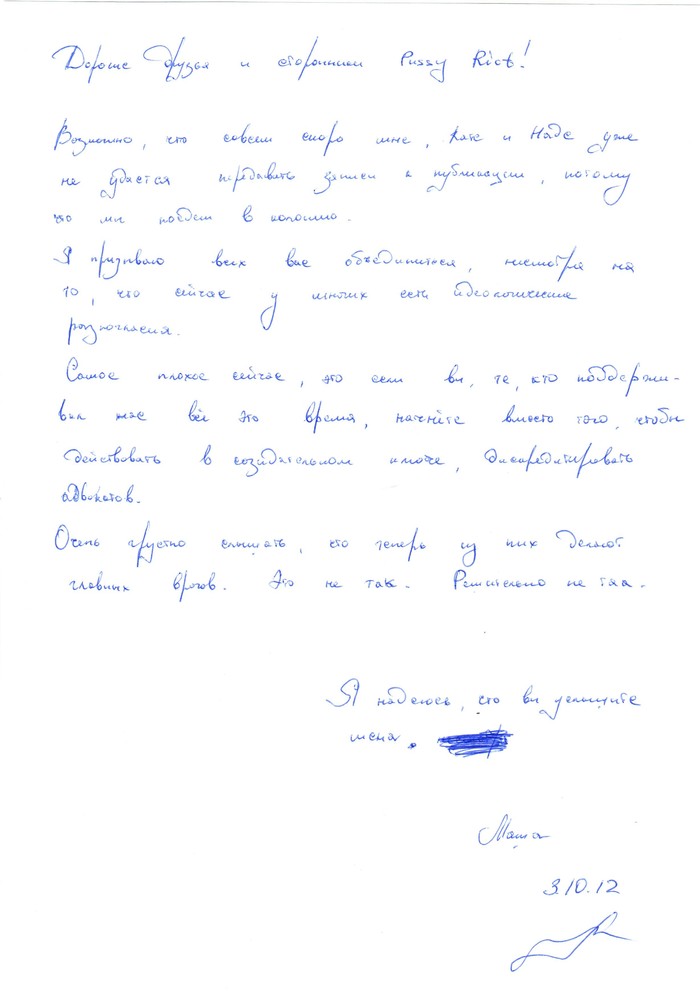 Дорогие друзья и сторонники Pussy Riot!
Возможно, что совсем скоро мне, Кате и Наде уже
не удастся передавать записи к публикации, потому
что мы поедем в колонию.
Я призываю всех вас объединиться, несмотря на
то, что сейчас у многих есть идеологические
разногласия.
Самое плохое сейчас, это если вы, те, кто поддержи-
вал нас всё это время, начнёте вместо того, чтобы
действовать в созидательном ключе, дискредитировать
адвокатов.
Очень грустно слышать, что теперь из них делают
главных врагов. Это не так. Решительно не так.
Я надеюсь, что вы услышите
меня.
Маша
3.10.12